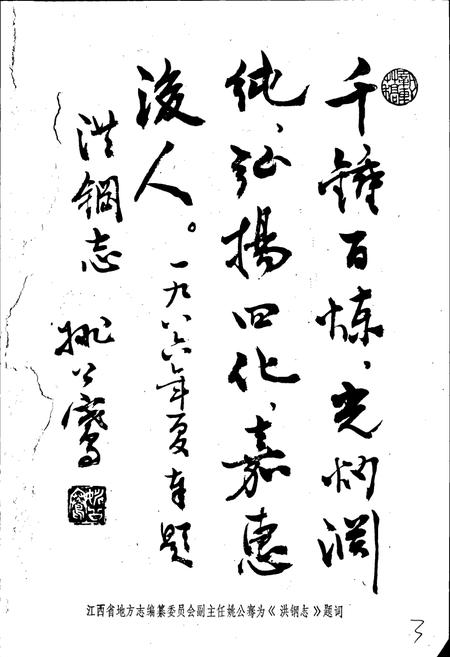 千錘百煉、光炳渊
纯、弘揚四化、嘉惠
後人。一九八六年夏奉题
洪鋼志 姚公骞
江西省地方志编纂委员会副主任姚公骞为《洪钢志》题词
3